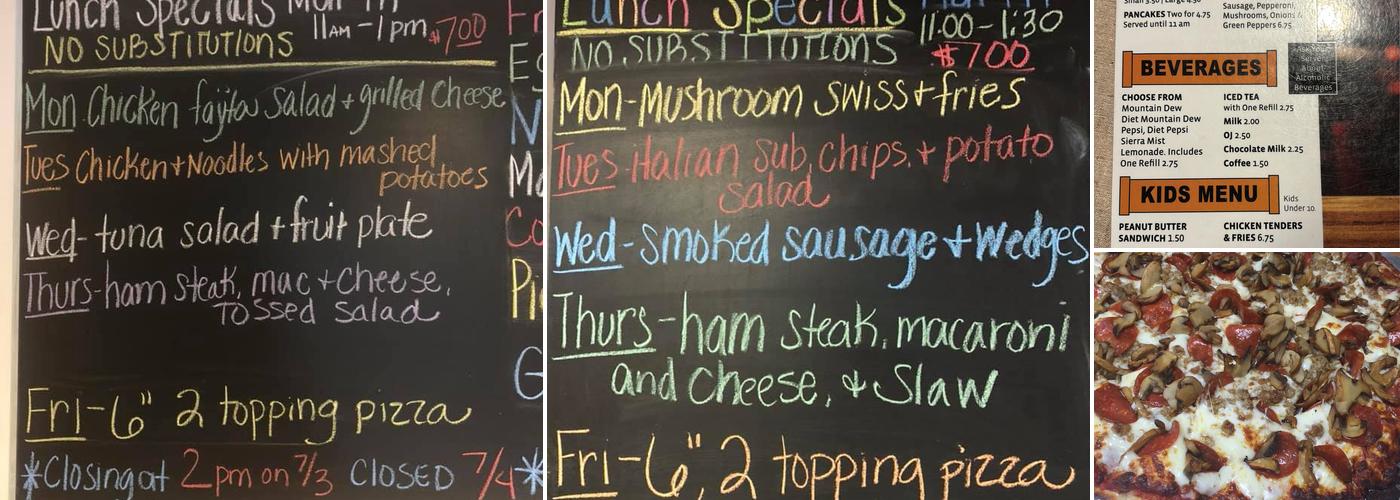 Lunch Specials
11AM-1pm $7.00
NO SUBSTITUTIONS
Mon Chicken fajita salad + grilled cheese
Tues Chicken + Noodles with mashed
potatoes
Wed- tuna salad + fruit plate
Thurs-ham steak, mac + cheese,
tossed salad
Fri-6" 2 topping pizza
*Closing at 2pm on 7/3 CLOSED 7/4*
Lunch Specials
11:00-1:30
NO SUBSTITUTIONS $7.00
Mon-Mushroom swiss + fries
Tues-italian sub, chips, + potato
salad
Wed-smoked sausage + Wedges
Thurs-ham steak, macaroni
and cheese, & slaw
Fri-6", 2 topping pizza
PANCAKES Two for 4.75
Served until 11 am
Sausage, Pepperoni,
Mushrooms, Onions &
Green Peppers 6.75
BEVERAGES
Ask Your
Server
About
Alcoholic
Beverages
CHOOSE FROM
Mountain Dew
Diet Mountain Dew
Pepsi, Diet Pepsi
Sierra Mist
Lemonade. Includes
One Refill 2.75
ICED TEA
with One Refill 2.75
Milk 2.00
OJ 2.50
Chocolate Milk 2.25
Coffee 1.50
KIDS MENU
Kids
Under 10.
PEANUT BUTTER
SANDWICH 1.50
CHICKEN TENDERS
& FRIES 6.75